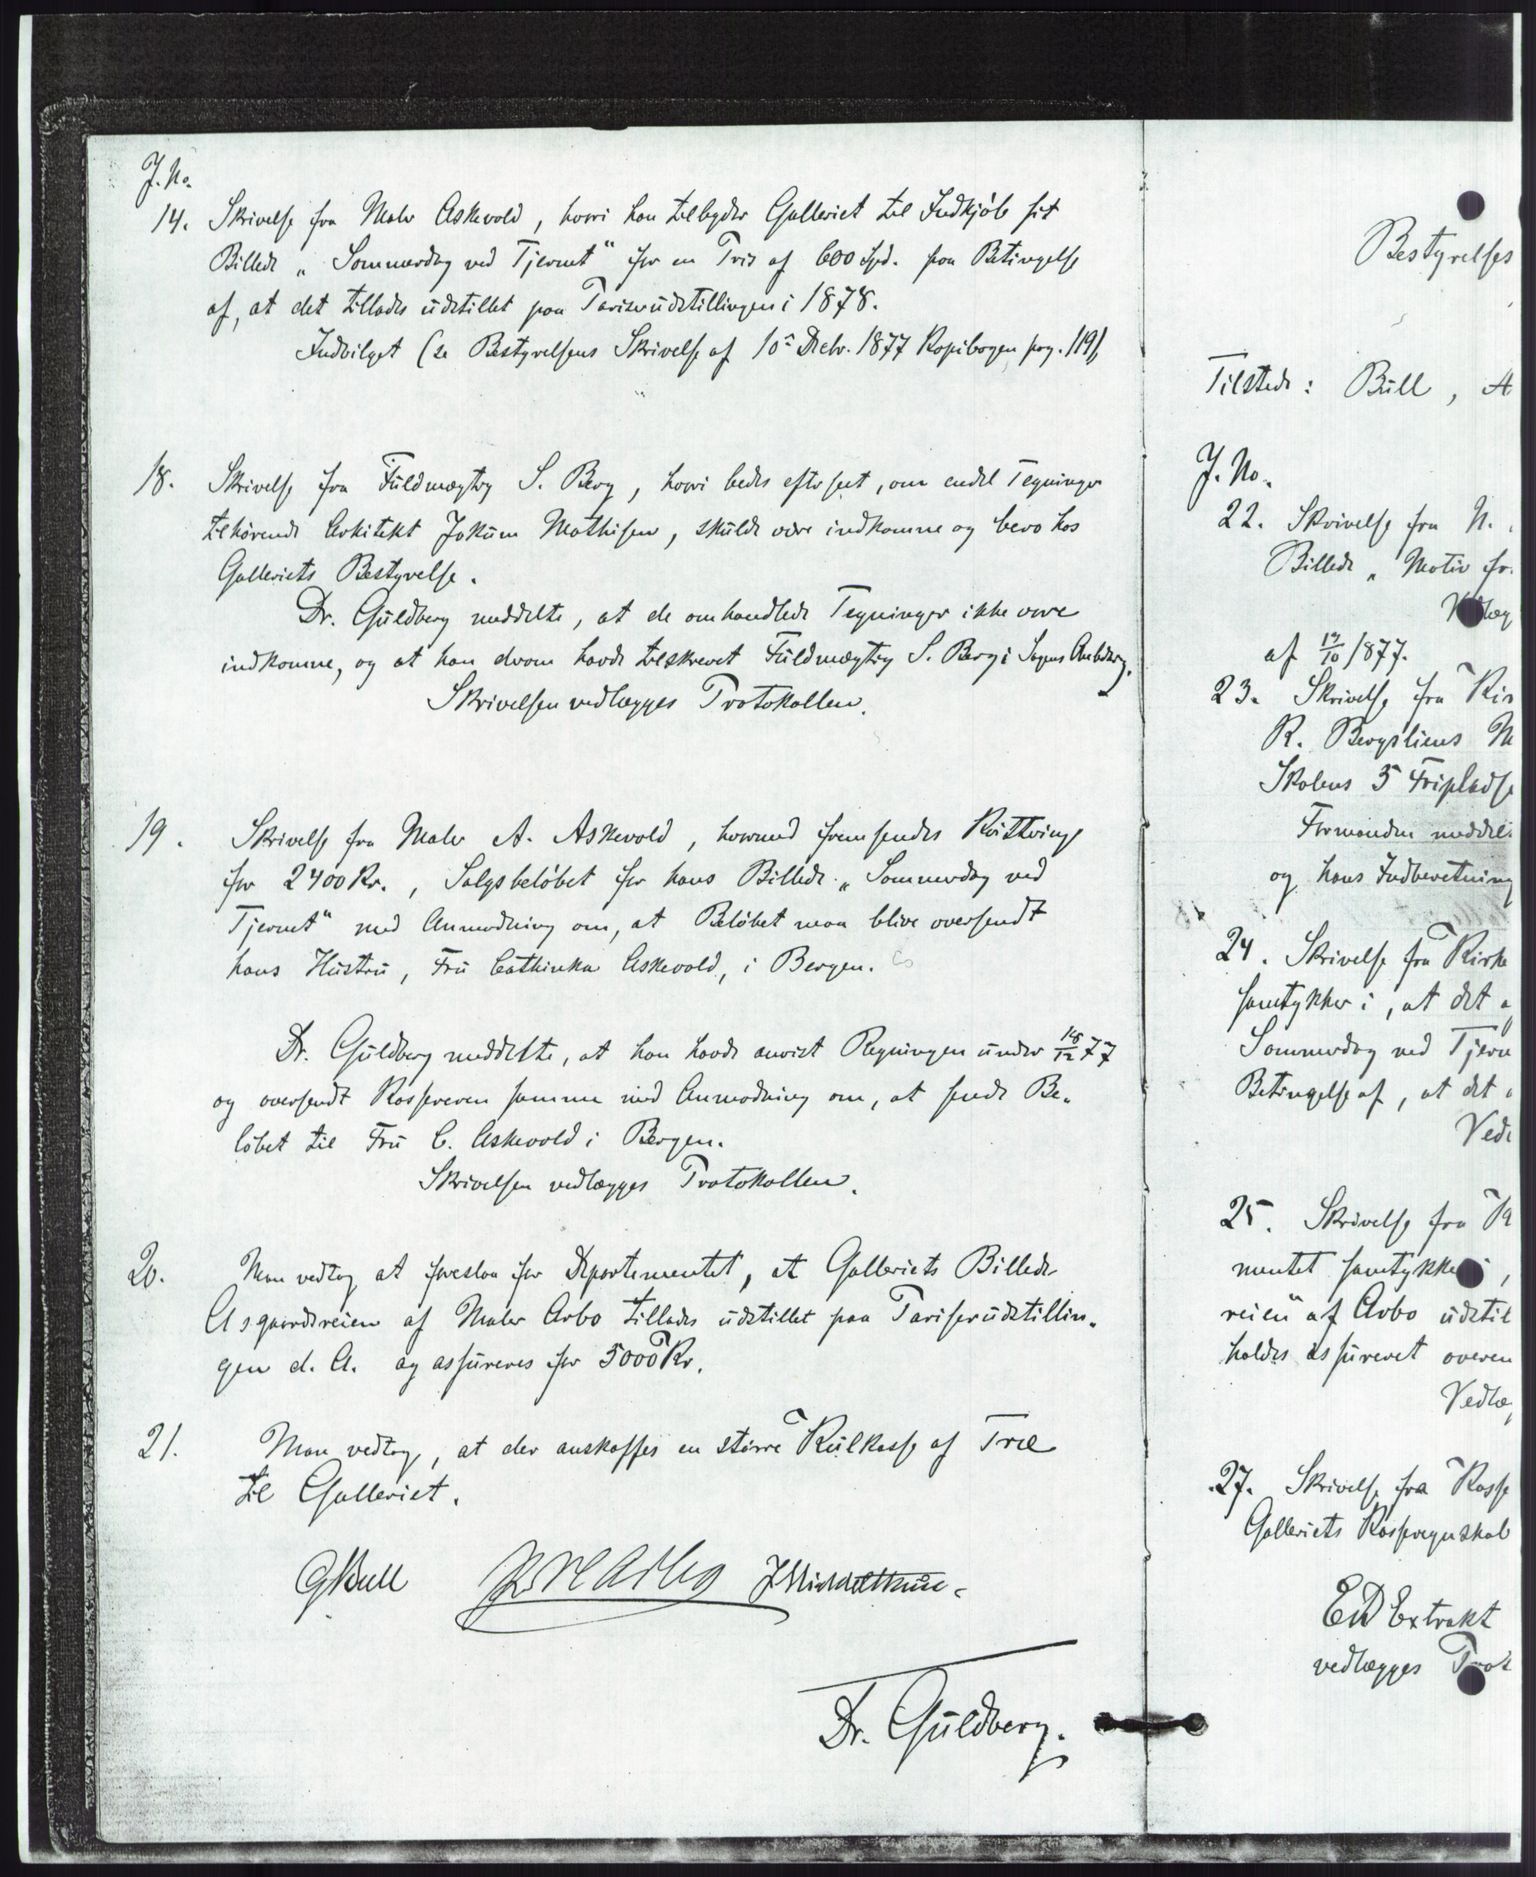 J. No.
14. Skrivelse fra Maler Askevold, hvori han tilbyder Galleriet til Indkjøb sit
Billede „Sommerdag ved Tjernet“ for en Pris af 600 Spd. paa Betingelse
af, at det tillades udstillet paa Pariserudstillingen i 1878.
Indvilget (se Bestyrelsens Skrivelse af 10de Decbr. 1877 Kopibogen pag. 119)
18. Skrivelse fra Fuldmægtig S. Berg, hvori bedes efterseet, om endel Tegninger
tilhørende Arkitekt Jokum Mathisen, skulde være indkomne og bero hos
Galleriets Bestyrelse.
Dr. Guldberg meddelte, at de omhandlede Tegninger ikke vare
indkomne, og at han derom havde tilskrevet Fuldmægtig S. Berg i Sagens Anledng.
Skrivelsen vedlægges Protokollen.
19. Skrivelse fra Maler A. Askevold, hvormed fremsendes Kvittering
for 2400 Kr., Salgsbeløbet for hans Billede „Sommerdag ved
Tjernet“ med Anmodning om, at Beløbet maa blive oversendt
hans Hustru, Fru Cathinka Askevold, i Bergen.
Dr. Guldberg meddelte, at han havde anvist Regningen under 18/12 77
og oversendt Kassereren samme med Anmodning om, at sende Be-
løbet til Fru C. Askevold i Bergen.
Skrivelsen vedlægges Protokollen.
20. Man vedtog at foreslaa for Departementet, at Galleriets Billede
Asgaardsreien af Maler Arbo tillades udstillet paa Pariserudstillin-
gen d. A. og assureres for 5000 Kr.
21. Man vedtog, at der anskaffes en større Kulkasse af Træ
til Galleriet.
G Bull JMiddelthun.
Dr. Guldberg.
Bestyrelses
Tilstede: Bull, A
J. No.
22. Skrivelse fra N.
Billede „Motiv fr
Vedlæg
af 17/10 1877.
23. Skrivelse fra Kir
K. Bergsliens M
Skolens 5 Friplads
Formanden meddel
og hans Indberetning
24. Skrivelse fra Kirke
samtykker i, at det
Sommerdag ved Tjern
Betingelse af, at det
Vedl
25. Skrivelse fra K
mentet samtykker i,
reien“ af Arbo udstil
holdes assureret overen
Vedlæ
27. Skrivelse fra Kasse
Galleriets Kasseregnskab
Et Extrakt
vedlægges Prot